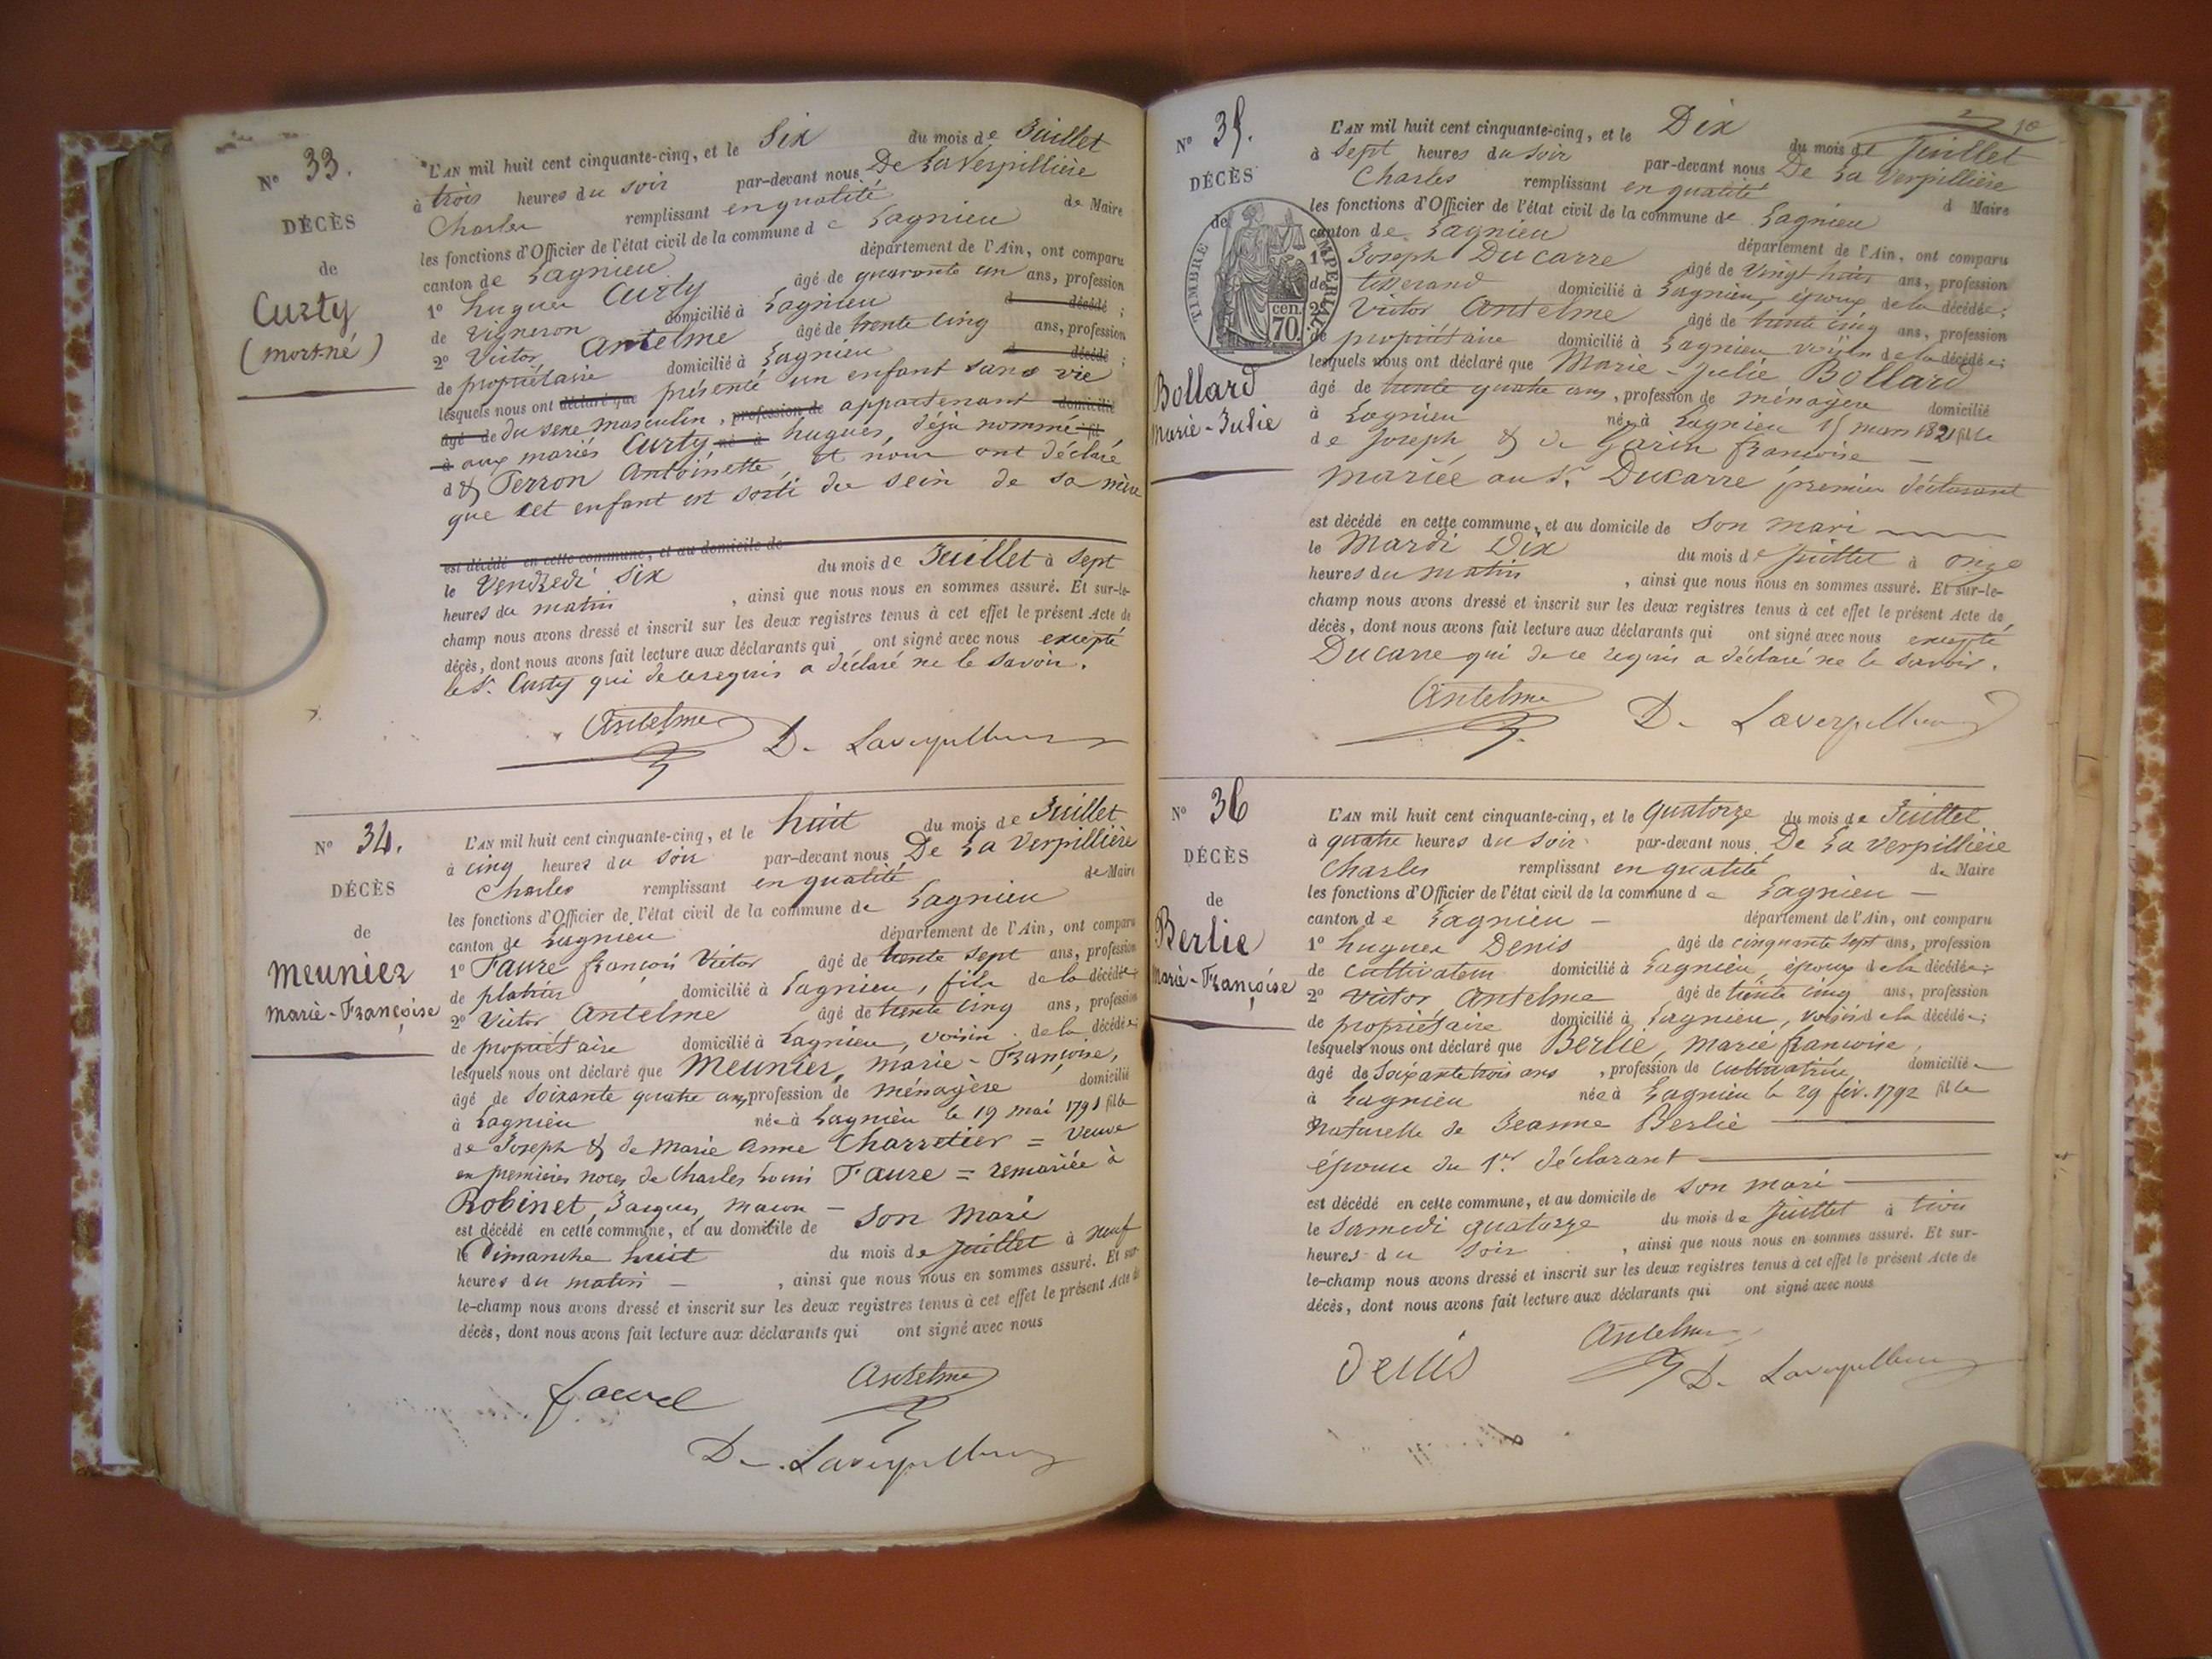 N° 33.
DÉCÈS
de
Curty
(mort-né)
L'AN mil huit cent cinquante-cinq, et le Six du mois de Juillet
à trois heures du soir par-devant nous De La Verpillière
Charles remplissant en qualité de Maire
les fonctions d'Officier de l'état civil de la commune de Lagnieu
canton de Lagnieu département de l'Ain, ont comparu
1° hugues Curty âgé de quarante un ans, profession
de vigneron domicilié à Lagnieu d décédé ;
2° Victor Antelme âgé de trente cinq ans, profession
de propriétaire domicilié à Lagnieu d décédé ;
lesquels nous ont déclaré que présenté un enfant sans vie
âgé de du sexe masculin, profession de appartenant domicilié
à aux mariés Curty né à hugues, déjà nommé fil
d & Perron Antoinette, et nous ont déclaré
que cet enfant est sorti du sein de sa mère
est décédé en cette commune, et au domicile de
le Vendredi six du mois de Juillet à sept
heures du matin , ainsi que nous nous en sommes assuré. Et sur-le-
champ nous avons dressé et inscrit sur les deux registres tenus à cet effet le présent Acte de
décès, dont nous avons fait lecture aux déclarants qui ont signé avec nous excepté
le Sr. Curty qui de ce requis a déclaré ne le savoir.
Antelme D. Laverpilliere
N° 34.
DÉCÈS
de
Meunier
Marie-Françoise
L'AN mil huit cent cinquante-cinq, et le huit du mois de Juillet
à cinq heures du soir par-devant nous De La Verpillière
Charles remplissant en qualité de Maire
les fonctions d'Officier de l'état civil de la commune de Lagnieu
canton de Lagnieu département de l'Ain, ont comparu
1° Faure françois Victor âgé de trente sept ans, profession
de platrier domicilié à Lagnieu, fils de la décédée;
2° Victor Antelme âgé de trente cinq ans, profession
de propriétaire domicilié à Lagnieu, voisin de la décédée;
lesquels nous ont déclaré que Meunier, Marie-Françoise,
âgé de soixante quatre ans, profession de ménagère domicilié
à Lagnieu née à Lagnieu le 19 mai 1791 fille
de Joseph & de Marie Anne Charretier = Veuve
en premières noces de Charles Louis Faure = remariée à
Robinet, Jacques, maçon -
est décédé en cette commune, et au domicile de son mari
le Dimanche huit du mois de Juillet à neuf
heures du matin - , ainsi que nous nous en sommes assuré. Et sur-
le-champ nous avons dressé et inscrit sur les deux registres tenus à cet effet le présent Acte de
décès, dont nous avons fait lecture aux déclarants qui ont signé avec nous
faure Antelme
D. Laverpilliere
10
N° 35.
DÉCÈS
de
TIMBRE IMPERIAL
cen.
70.
Bollard
Marie-Julie
L'AN mil huit cent cinquante-cinq, et le Dix du mois de Juillet
à sept heures du soir par-devant nous De La Verpillière
Charles remplissant en qualité d Maire
les fonctions d'Officier de l'état civil de la commune de Lagnieu
canton de Lagnieu département de l'Ain, ont comparu
1° Joseph Ducarre âgé de vingt huit ans, profession
de tisserand domicilié à Lagnieu, époux de la décédée;
2° Victor Antelme âgé de trente cinq ans, profession
de propriétaire domicilié à Lagnieu voisin de la décédée;
lesquels nous ont déclaré que Marie-Julie Bollard
âgé de trente quatre ans, profession de ménagère domicilié
à Lagnieu née à Lagnieu 15 mars 1821 fille
de Joseph & de Garin françoise -
mariée au Sr. Ducarre premier déclarant
est décédé en cette commune, et au domicile de son mari
le Mardi Dix du mois de Juillet à onze
heures du matin , ainsi que nous nous en sommes assuré. Et sur-le-
champ nous avons dressé et inscrit sur les deux registres tenus à cet effet le présent Acte de
décès, dont nous avons fait lecture aux déclarants qui ont signé avec nous excepté
Ducarre qui de ce requis a déclaré ne le savoir.
Antelme D. Laverpilliere
N° 36
DÉCÈS
de
Berlie
Marie-Françoise
L'AN mil huit cent cinquante-cinq, et le quatorze du mois de Juillet
à quatre heures du soir par-devant nous De La Verpillière
Charles remplissant en qualité de Maire
les fonctions d'Officier de l'état civil de la commune de Lagnieu -
canton de Lagnieu - département de l'Ain, ont comparu
1° hugues Denis âgé de cinquante sept ans, profession
de cultivateur domicilié à Lagnieu, époux de la décédée;
2° Victor Antelme âgé de trente cinq ans, profession
de propriétaire domicilié à Lagnieu, voisin de la décédée;
lesquels nous ont déclaré que Berlie, Marie françoise,
âgé de soixante trois ans, profession de cultivatrice domiciliée
à Lagnieu née à Lagnieu le 29 fév. 1792 fille
naturelle de Jeanne Berlie
épouse du 1er. déclarant
est décédé en cette commune, et au domicile de son mari
le Samedi quatorze du mois de Juillet à trois
heures du soir , ainsi que nous nous en sommes assuré. Et sur-
le-champ nous avons dressé et inscrit sur les deux registres tenus à cet effet le présent Acte de
décès, dont nous avons fait lecture aux déclarants qui ont signé avec nous
denis Antelme D. Laverpilliere